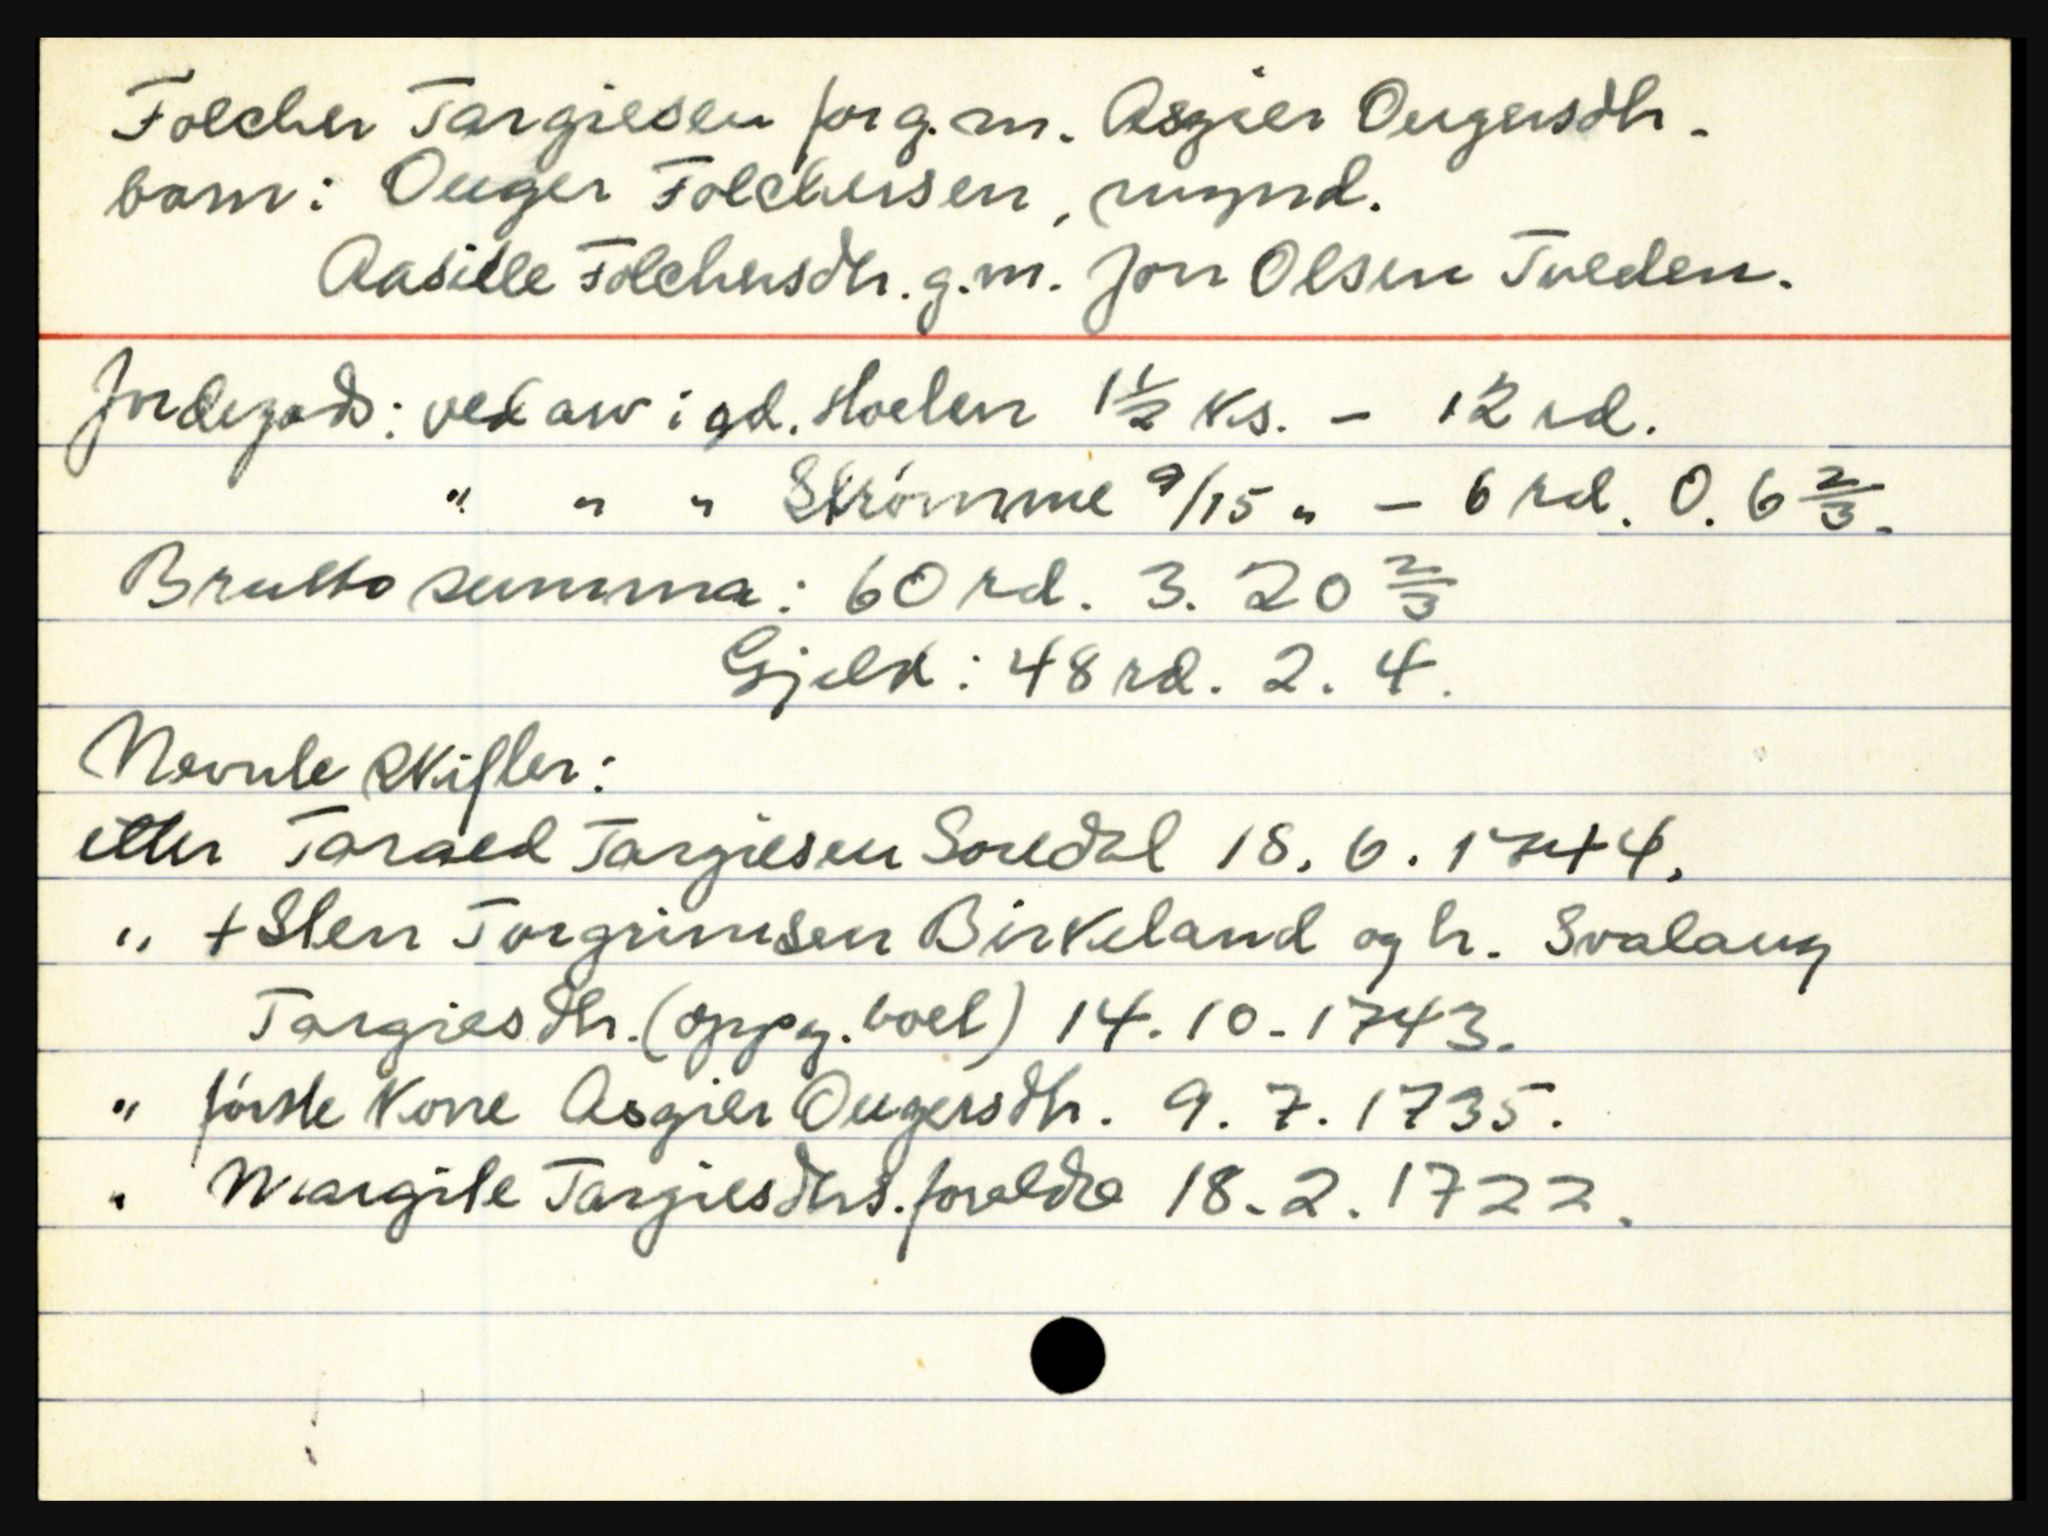 Folcher Targiesen for g.m. Asgier Ougersdtr.
barn: Ouger Folchersen, mynd.
Aasille Folchersdtr. g.m. Jon Olsen Tveden.
Jordegods: ved arv i gd. Hoelen 1 1/2 ks. - 12 rd.
" " " Strømme 9/15 " - 6 rd. 0. 6 2/3.
Brutto summa: 60 rd. 3. 20 2/3
Gjeld: 48 rd. 2. 4.
Nevnte skifter:
etter Taraed Targiesen Soredal 18. 6. 1744.
" + Sten Torgrimsen Birkeland og h. Svalaug
Targiesdtr. (oppg. boet) 14.10-1743.
" første kone Asgier Ougersdtr. 9. 7. 1735.
" Margite Targiesdtrs. foreldre 18.2.1722.